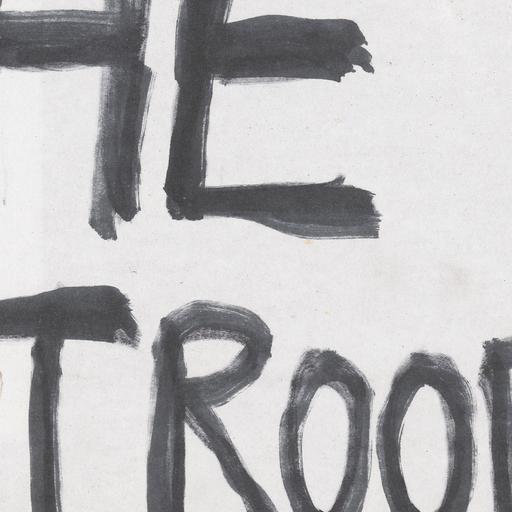 HE
TROOP